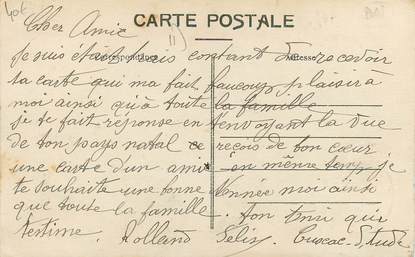 Cher Amie CARTE POSTALE
je suis était trais contant de recevoir
Correspondance Adresse
ta carte qui ma fait baucoup plaisir à
moi ainsi qu'à toute la famille
je te fait réponse en t'envoyant la vue
de ton pays natal ce reçois de bon cœur
une carte d'un ami en même temps je
te souhaite une bonne année moi ainsi
que toute la famille. ton ami qui
t'estime. Rolland Félix